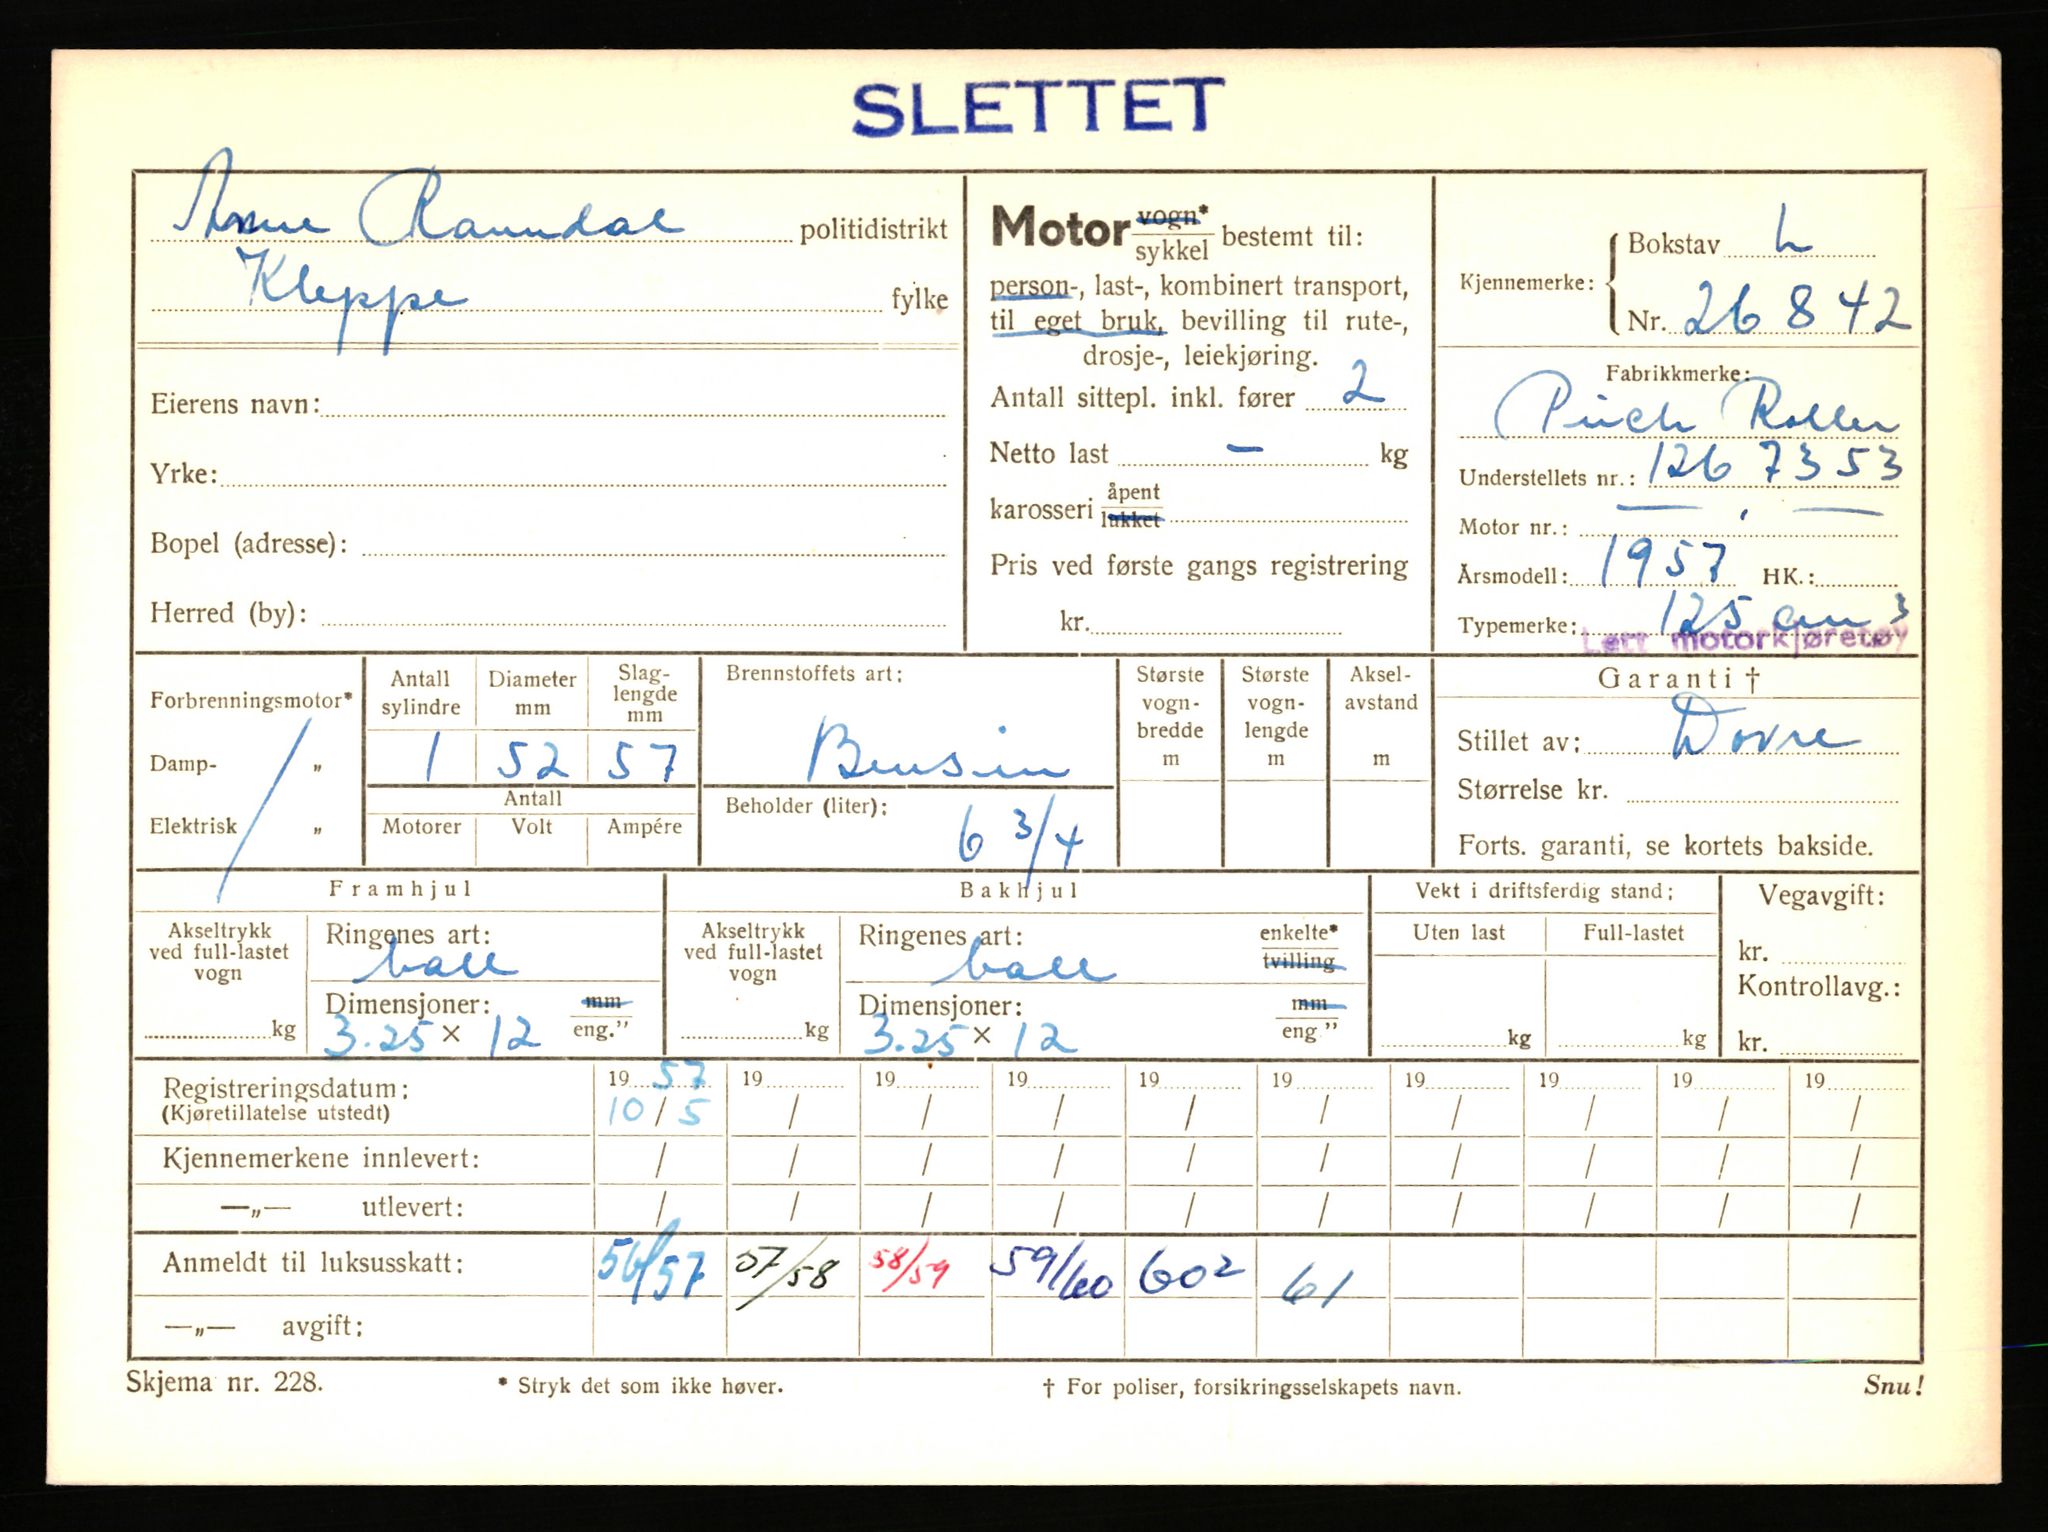 SLETTET
Ravndal politidistrikt
Kleppe fylke
Eierens navn:
Yrke:
Bopel (adresse):
Herred (by):
Motor vogn* sykkel bestemt til:
person-, last-, kombinert transport,
til eget bruk, bevilling til rute-,
drosje-, leiekjøring.
Antall sittepl. inkl. fører 2
Netto last – kg
karosseri åpent lukket
Pris ved første gangs registrering
kr.
Kjennemerke: Bokstav L
Nr. 26842
Fabrikkmerke:
Puch Roller
Understellets nr.: 1267353
Motor nr.: — " —
Årsmodell: 1957 HK.:
Typemerke: 125 cm3
Lett motorkjøretøy
Forbrenningsmotor*
Damp- „
Elektrisk „
Antall sylindre Diameter mm Slag-lengde mm
1 52 57
Antall
Motorer Volt Ampére
Brennstoffets art:
Bensin
Beholder (liter):
6 3/4
Største vogn-bredde m
Største vogn-lengde m
Aksel-avstand m
Garanti †
Stillet av: Dovre
Størrelse kr.
Forts. garanti, se kortets bakside.
Framhjul
Akseltrykk ved full-lastet vogn
kg
Ringenes art:
ball
Dimensjoner: mm
3.25 × 12 eng."
Bakhjul
Akseltrykk ved full-lastet vogn
kg
Ringenes art: enkelte*
ball tvilling
Dimensjoner: mm
3.25 × 12 eng"
Vekt i driftsferdig stand:
Uten last Full-lastet
kg kg
Vegavgift:
kr.
Kontrollavg.:
kr.
Registreringsdatum: 19 57 19 19 19 19 19 19 19 19 19
(Kjøretillatelse utstedt) 10 / 5 / / / / / / / / /
Kjennemerkene innlevert: / / / / / / / / / /
—„— utlevert: / / / / / / / / / /
Anmeldt til luksusskatt: 56/57 57/58 58/59 59/60 602 61
—„— avgift:
Skjema nr. 228. * Stryk det som ikke høver. † For poliser, forsikringsselskapets navn. Snu!